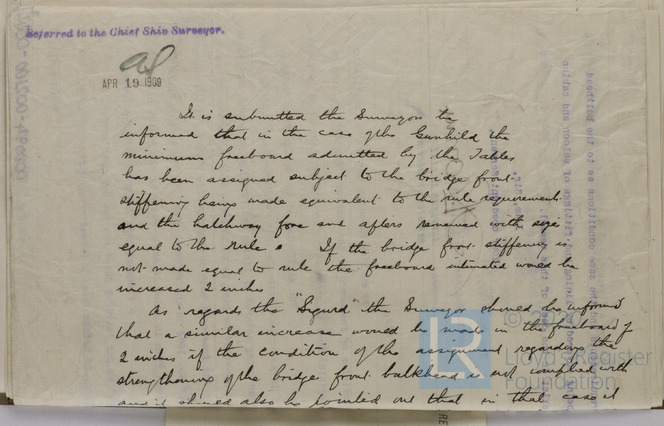 Referred to the Chief Ship Surveyor.
APR 19 1909
It is submitted the Surveyors be
informed that in the case of the Gunhild the
minimum freeboard admitted by the Tables
has been assigned subject to the bridge front
stiffening being made equivalent to the rule requirements
and the hatchway fore and afters renewed with size
equal to the Rule. If the bridge front stiffening is
not made equal to rule the freeboard intimated would be
increased 2 inches
As regards the "Sigurd" the Surveyor should be informed
that a similar increase would be made in the freeboard of
2 inches if the condition of the assignment regarding the
strengthening of the bridge front bulkhead is not complied with
and it should also be pointed out that in that case it
©
Lloyd's Register
Foundation